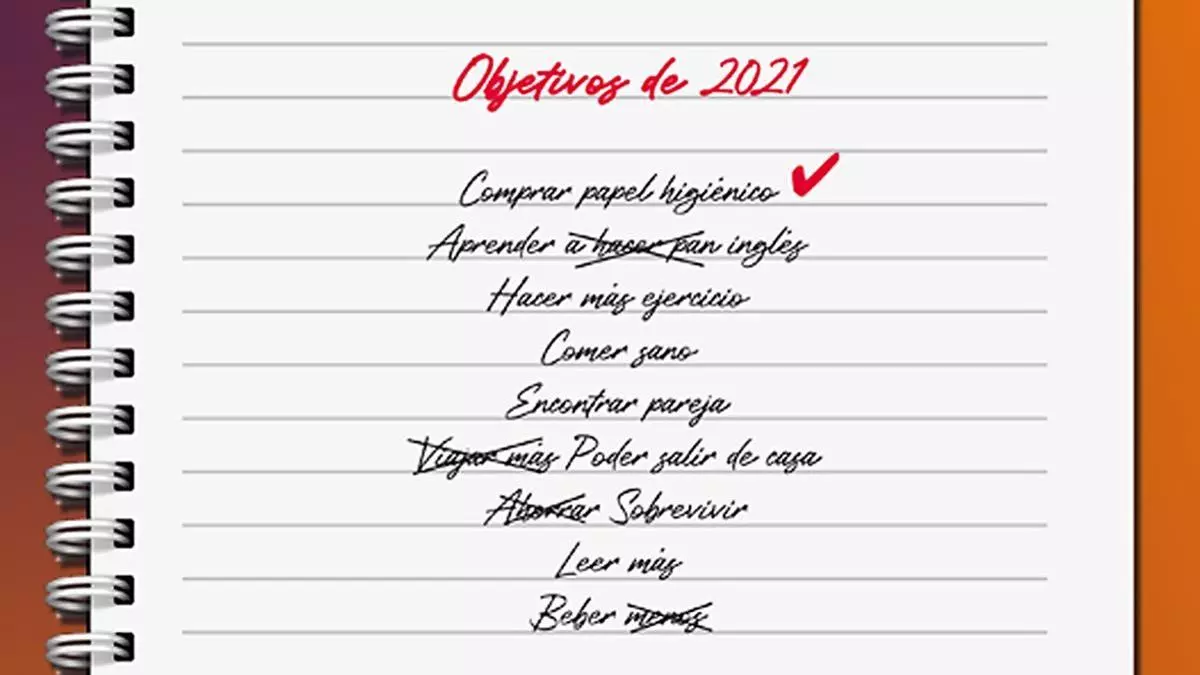 Objetivos de 2021
Comprar papel higiénico ✔
Aprender a hacer pan inglés
Hacer más ejercicio
Comer sano
Encontrar pareja
Viajar más Poder salir de casa
Ahorrar Sobrevivir
Leer más
Beber menos